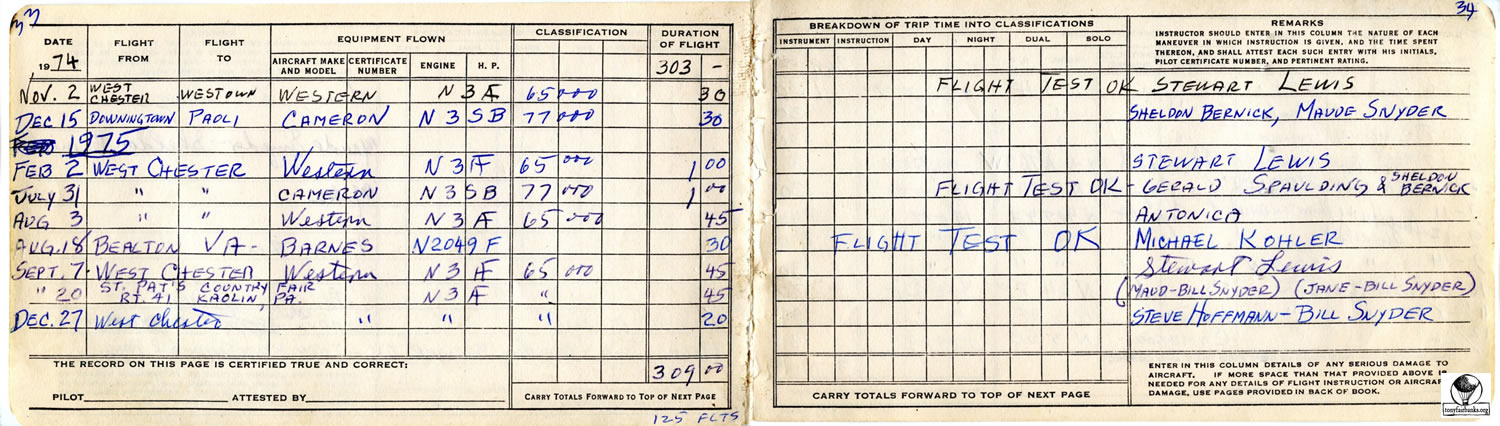 33
DATE FLIGHT FROM FLIGHT TO EQUIPMENT FLOWN CLASSIFICATION DURATION OF FLIGHT
1974 AIRCRAFT MAKE AND MODEL CERTIFICATE NUMBER ENGINE H. P. 303 -
NOV. 2 WEST CHESTER WESTOWN WESTERN N 3 A 65000 30
DEC 15 DOWNINGTOWN PAOLI CAMERON N 3 SB 77000 30
1975
FEB 2 WEST CHESTER Western N 3 A 65000 1 00
JULY 31 " " CAMERON N 3 SB 77000 1 00
AUG 3 " " Western N 3 A 65000 45
AUG. 18 BEALTON VA- BARNES N2049 F 30
SEPT. 7- WEST CHESTER Western N 3 A 65000 45
" 20 ST. PAT'S COUNTRY FAIR RT. 41 KAOLIN, PA. N 3 A " 45
DEC. 27 West Chester " " " 20
THE RECORD ON THIS PAGE IS CERTIFIED TRUE AND CORRECT: 309 00
PILOT ATTESTED BY CARRY TOTALS FORWARD TO TOP OF NEXT PAGE
125 FLTS
34
BREAKDOWN OF TRIP TIME INTO CLASSIFICATIONS REMARKS
INSTRUMENT INSTRUCTION DAY NIGHT DUAL SOLO
INSTRUCTOR SHOULD ENTER IN THIS COLUMN THE NATURE OF EACH
MANEUVER IN WHICH INSTRUCTION IS GIVEN, AND THE TIME SPENT
THEREON, AND SHALL ATTEST EACH SUCH ENTRY WITH HIS INITIALS,
PILOT CERTIFICATE NUMBER, AND PERTINENT RATING.
FLIGHT TEST OK STEWART LEWIS
SHELDON BERNICK, MAUDE SNYDER
STEWART LEWIS
FLIGHT TEST OK - GERALD SPAULDING & SHELDON BERNICK
ANTONICA
FLIGHT TEST OK MICHAEL KOHLER
Stewart Lewis
(MAUD-BILL SNYDER) (JANE-BILL SNYDER)
STEVE HOFFMANN-BILL SNYDER
ENTER IN THIS COLUMN DETAILS OF ANY SERIOUS DAMAGE TO
AIRCRAFT. IF MORE SPACE THAN THAT PROVIDED ABOVE IS
NEEDED FOR ANY DETAILS OF FLIGHT INSTRUCTION OR AIRCRAF
DAMAGE, USE PAGES PROVIDED IN BACK OF BOOK.
CARRY TOTALS FORWARD TO TOP OF NEXT PAGE
tonyfairbanks.org